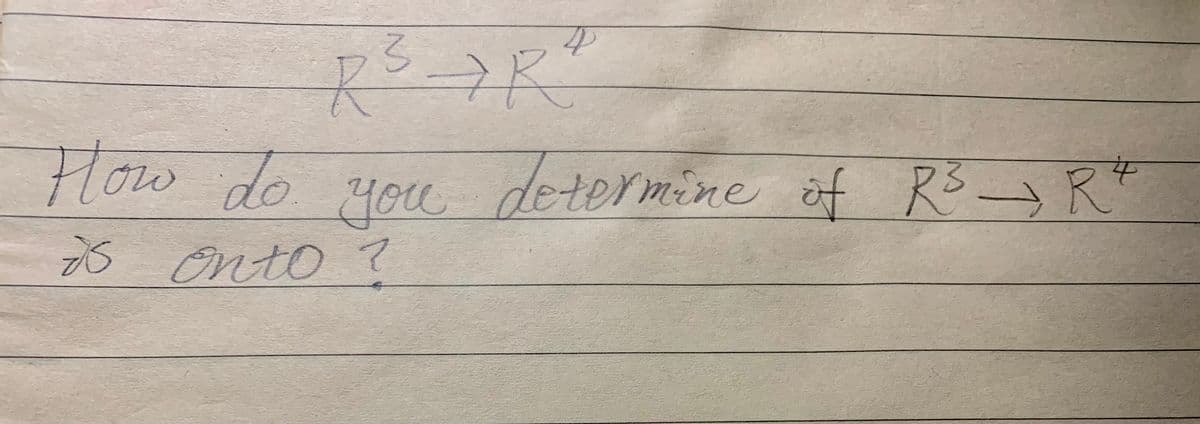 R³ → R⁴
How do you determine if R³ → R⁴
is onto ?